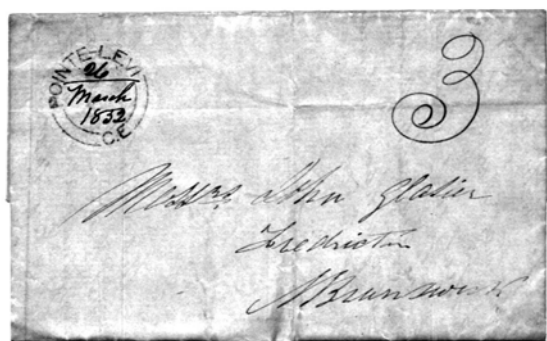 POINTE-LEVI
26
March
1852
C.E
3
Messrs. John Glasier
Fredricton
N Brunswick